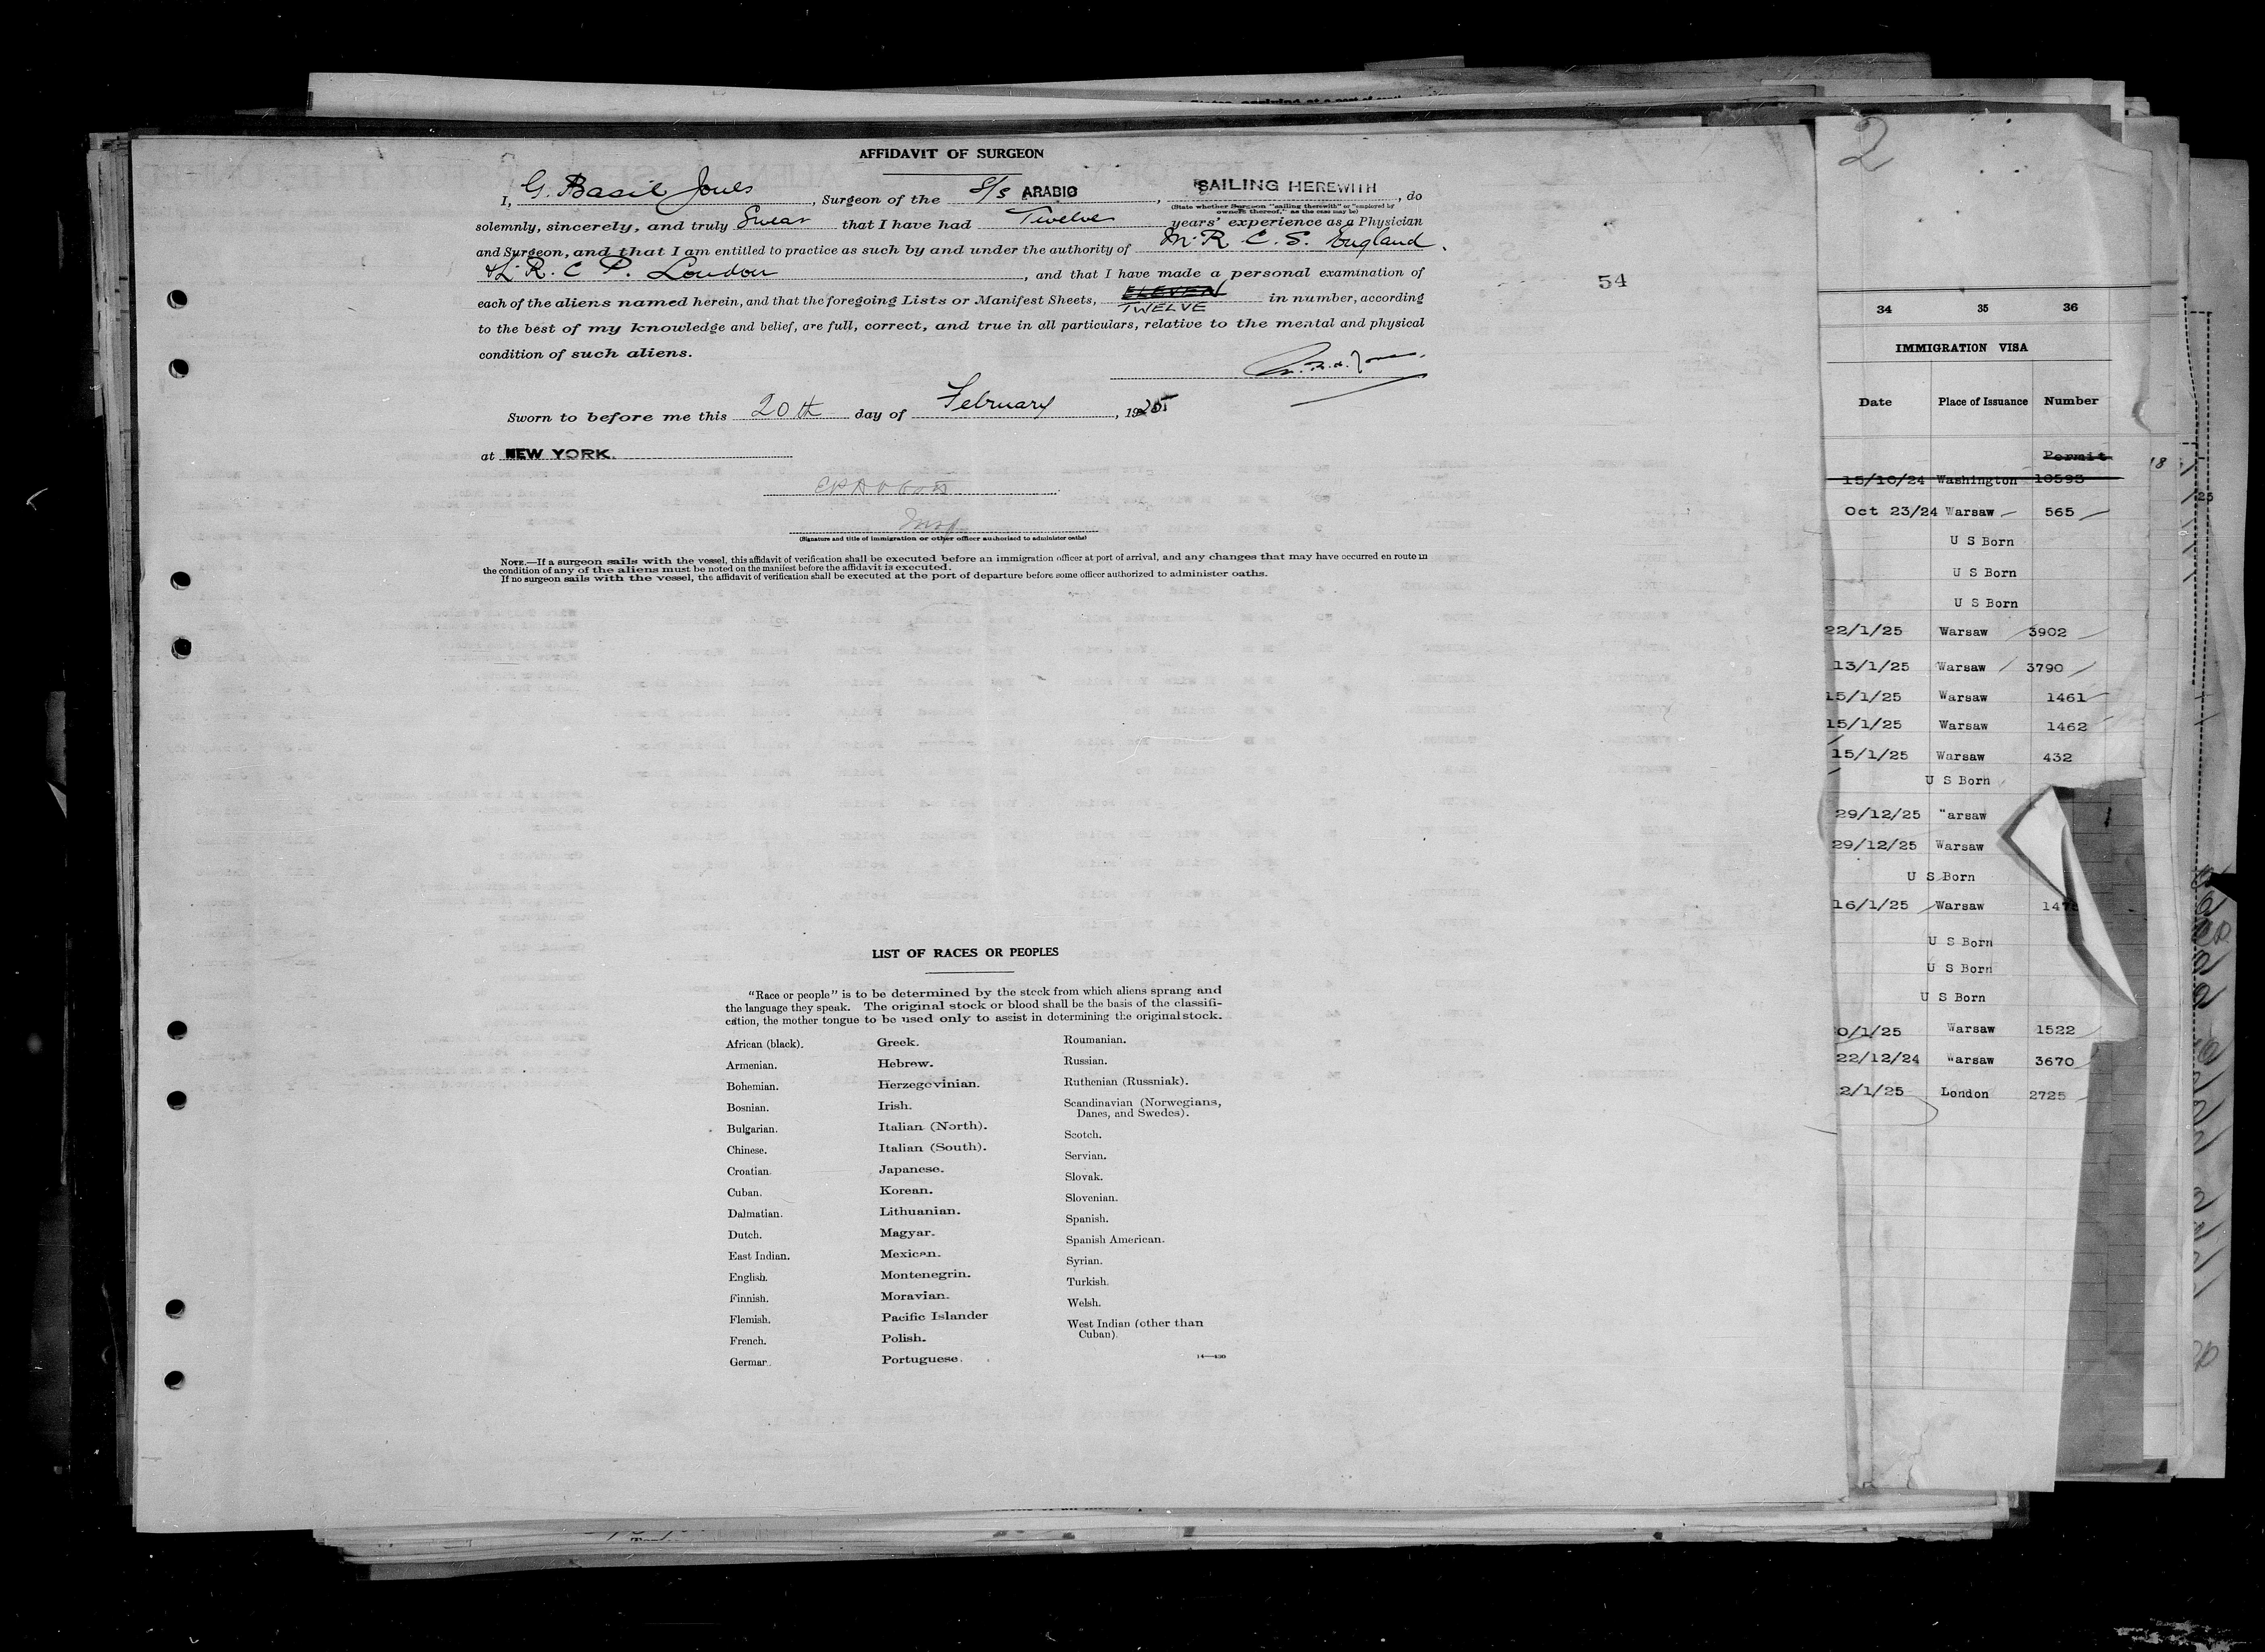 AFFIDAVIT OF SURGEON
I, G. Basil Jones, Surgeon of the S/S ARABIC, SAILING HEREWITH, do
(State whether Surgeon "sailing therewith" or "employed by
owners thereof," as the case may be)
solemnly, sincerely, and truly Swear that I have had Twelve years' experience as a Physician
and Surgeon, and that I am entitled to practice as such by and under the authority of M.R.C.S. England.
& L.R.C.P. London, and that I have made a personal examination of
each of the aliens named herein, and that the foregoing Lists or Manifest Sheets, ELEVEN in number, according
TWELVE
to the best of my knowledge and belief, are full, correct, and true in all particulars, relative to the mental and physical
condition of such aliens.
Sworn to before me this 20th day of February, 1925
at NEW YORK.
Insp
(Signature and title of immigration or other officer authorized to administer oaths)
NOTE.—If a surgeon sails with the vessel, this affidavit of verification shall be executed before an immigration officer at port of arrival, and any changes that may have occurred en route in
the condition of any of the aliens must be noted on the manifest before the affidavit is executed.
If no surgeon sails with the vessel, the affidavit of verification shall be executed at the port of departure before some officer authorized to administer oaths.
54
LIST OF RACES OR PEOPLES
"Race or people" is to be determined by the stock from which aliens sprang and
the language they speak. The original stock or blood shall be the basis of the classifi-
cation, the mother tongue to be used only to assist in determining the original stock.
African (black).
Armenian.
Bohemian.
Bosnian.
Bulgarian.
Chinese.
Croatian.
Cuban.
Dalmatian.
Dutch.
East Indian.
English.
Finnish.
Flemish.
French.
German.
Greek.
Hebrew.
Herzegovinian.
Irish.
Italian (North).
Italian (South).
Japanese.
Korean.
Lithuanian.
Magyar.
Mexican.
Montenegrin.
Moravian.
Pacific Islander
Polish.
Portuguese.
Roumanian.
Russian.
Ruthenian (Russniak).
Scandinavian (Norwegians,
Danes, and Swedes).
Scotch.
Servian.
Slovak.
Slovenian.
Spanish.
Spanish American.
Syrian.
Turkish.
Welsh.
West Indian (other than
Cuban).
14—430
2
34 35 36
IMMIGRATION VISA
Date Place of Issuance Number
Permit
15/10/24 Washington 10593
Oct 23/24 Warsaw 565
U S Born
U S Born
U S Born
22/1/25 Warsaw 3902
13/1/25 Warsaw 3790
15/1/25 Warsaw 1461
15/1/25 Warsaw 1462
15/1/25 Warsaw 432
U S Born
29/12/25 "arsaw
29/12/25 Warsaw
U S Born
16/1/25 Warsaw 147
U S Born
U S Born
U S Born
0/1/25 Warsaw 1522
22/12/24 Warsaw 3670
2/1/25 London 2725
18
25